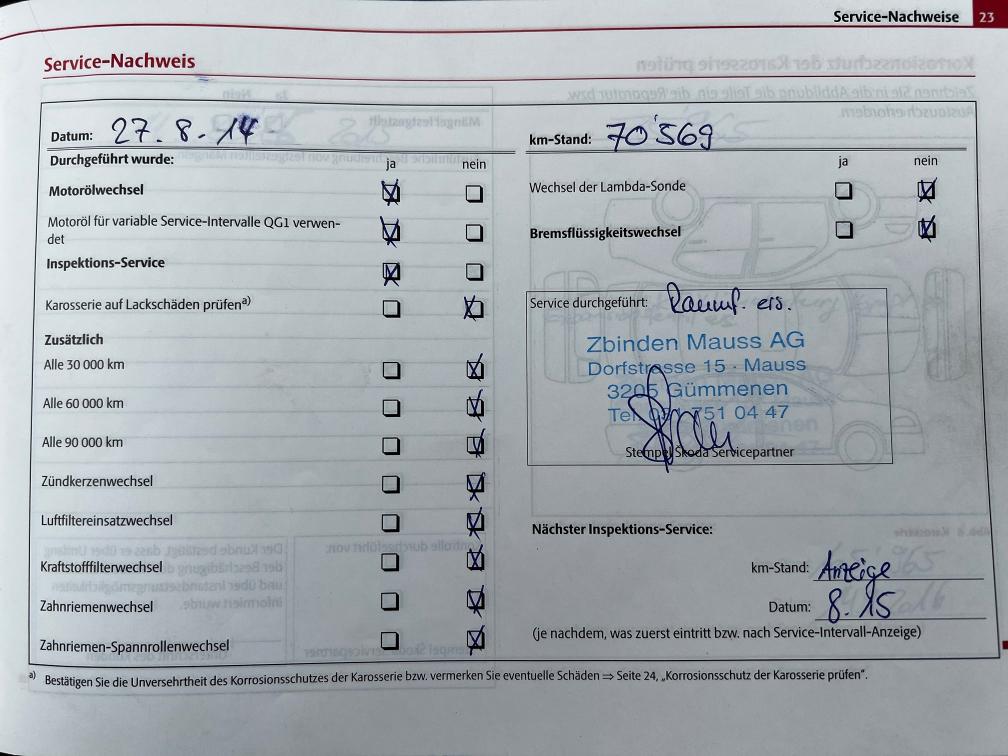 Service-Nachweise 23
Service-Nachweis
Datum: 27.8.14
Durchgeführt wurde: ja nein
Motorölwechsel
Motoröl für variable Service-Intervalle QG1 verwen-
det
Inspektions-Service
Karosserie auf Lackschäden prüfen a)
Zusätzlich
Alle 30 000 km
Alle 60 000 km
Alle 90 000 km
Zündkerzenwechsel
Luftfiltereinsatzwechsel
Kraftstofffilterwechsel
Zahnriemenwechsel
Zahnriemen-Spannrollenwechsel
km-Stand: 70'569
ja nein
Wechsel der Lambda-Sonde
Bremsflüssigkeitswechsel
Service durchgeführt: ers.
Zbinden Mauss AG
Dorfstrasse 15 · Mauss
3205 Gümmenen
Tel. 031 751 04 47
Stempel Škoda Servicepartner
Nächster Inspektions-Service:
km-Stand: Anzeige
Datum: 8.15
(je nachdem, was zuerst eintritt bzw. nach Service-Intervall-Anzeige)
a) Bestätigen Sie die Unversehrtheit des Korrosionsschutzes der Karosserie bzw. vermerken Sie eventuelle Schäden ⇒ Seite 24, „Korrosionsschutz der Karosserie prüfen“.